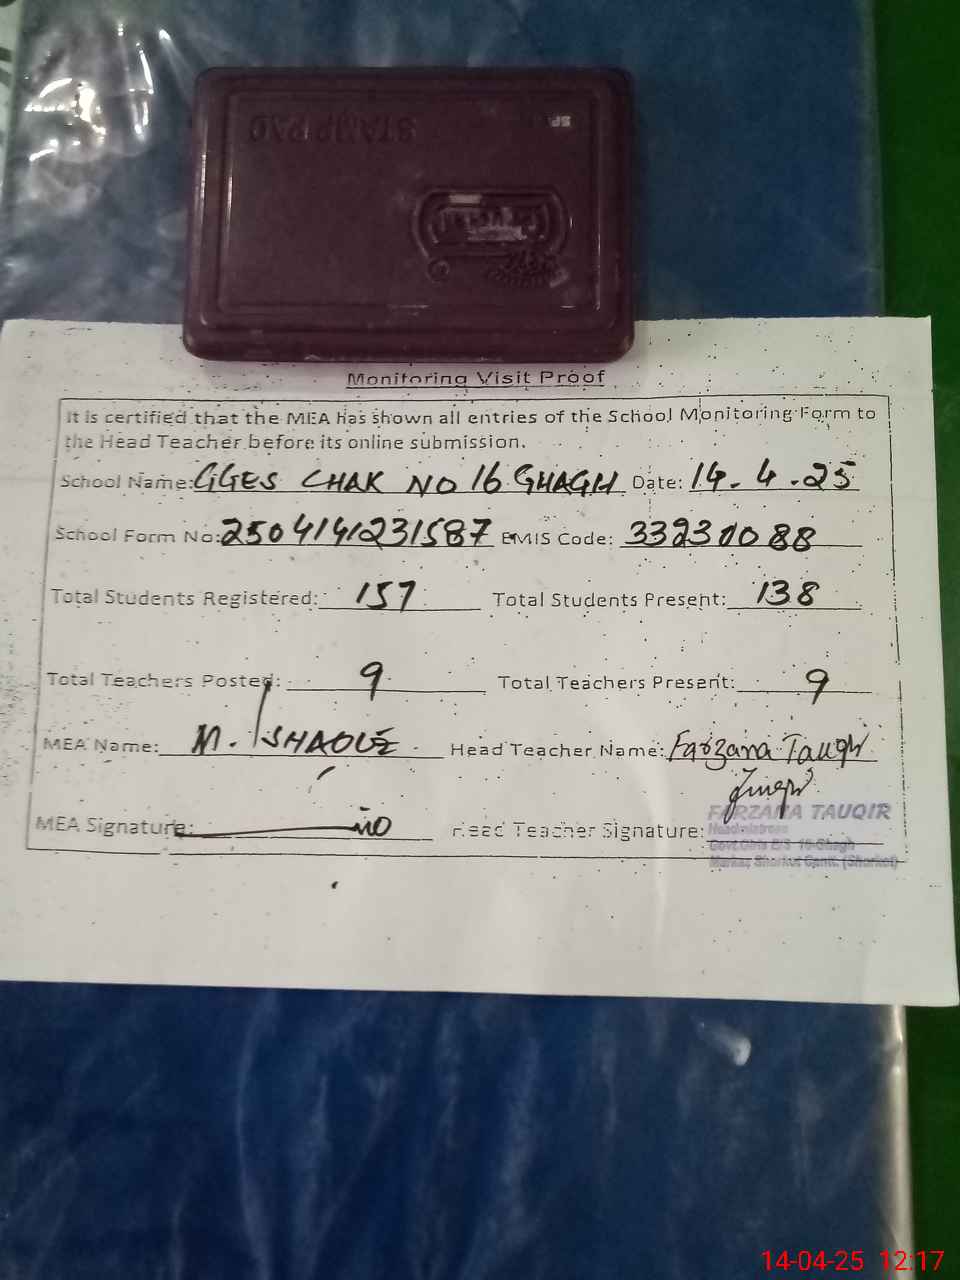 STAMP PAD
Monitoring Visit Proof
It is certified that the MEA has shown all entries of the School Monitoring Form to
the Head Teacher before its online submission.
School Name: GGES CHAK NO 16 GHAGH Date: 14-4-25
School Form No: 2504141231587 EMIS Code: 33230088
Total Students Registered: 157 Total Students Present: 138
Total Teachers Posted: 9 Total Teachers Present: 9
MEA Name: M. ISHAQUE Head Teacher Name: Farzana Tauqir
MEA Signature: Head Teacher Signature:
FARZANA TAUQIR
Headmistress
Govt.Girls E/S 16-Ghagh
Markaz Shorkot Cantt. (Shorkot)
14-04-25 12:17